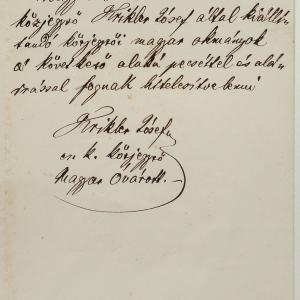 közjegyző Krikler József által kiállí-
tandó közjegyzői magyar okmányok
a következő alakú pecséttel és alá-
írással fognak hitelesítve lenni
Krikler József
kir. közjegyző
Magyar Óvárott.